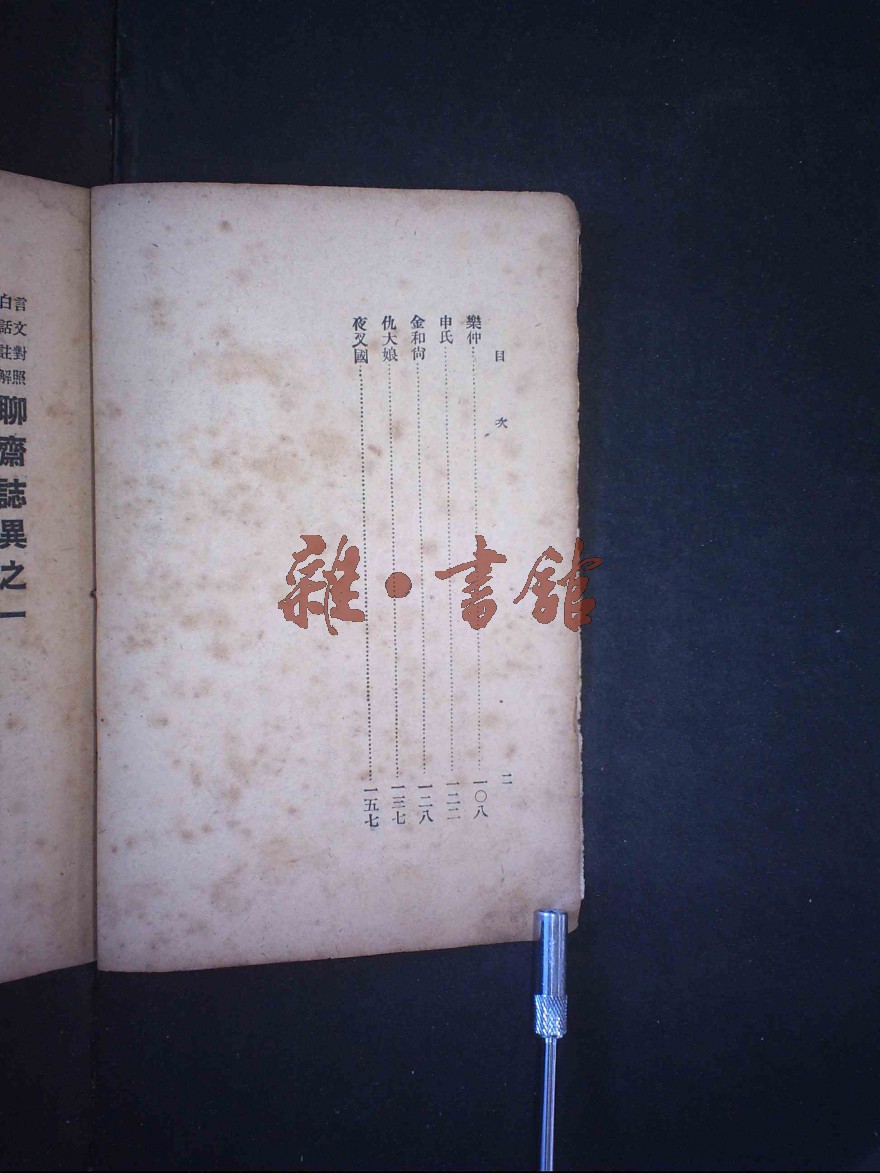 目次 二
樂仲 一〇八
申氏 一二二
金和尙 一二八
仇大娘 一三七
夜叉國 一五七
言文對照
白話註解
聊齋誌異之一
雜·書館